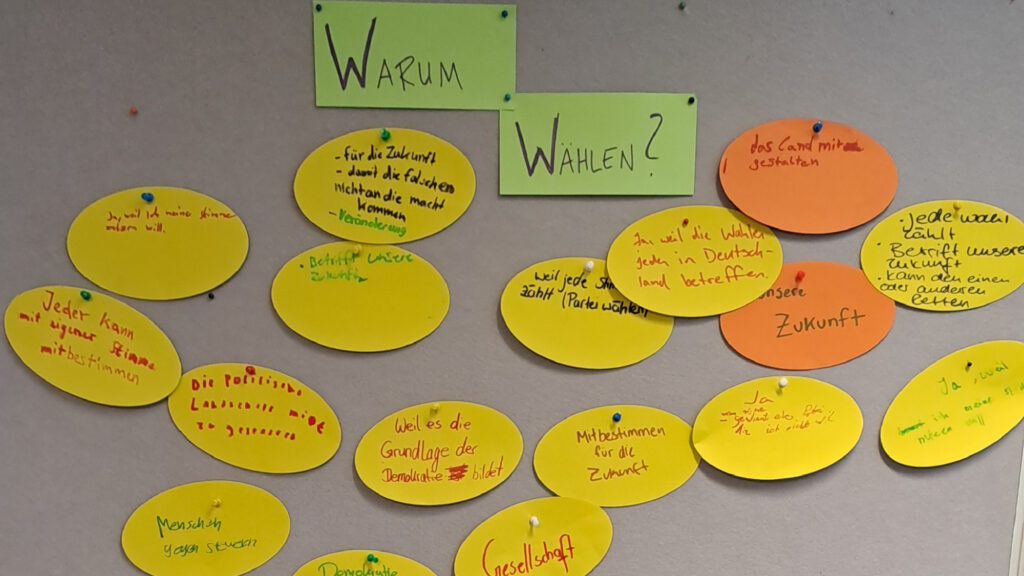 WARUM
WÄHLEN?
das Land mit
gestalten
- für die Zukunft
- damit die falschen
nicht an die macht
kommen
- Veränderung
Ja, weil ich meine Stimme
will.
• Betrifft unsere
Zukunft
Ja, weil die Wahlen
jeden in Deutsch-
land betreffen.
• jede wahl
zählt
• Betrift unsere
Zukunft
• kann den einen
oder anderen
Retten
weil jede
zählt (Partei wählen)
unsere
Zukunft
Jeder kann
mit eigener Stimme
mitbestimmen
Die Politische
Landschaft mit
zu
Weil es die
Grundlage der
Demokratie bildet
Mitbestimmen
für die
Zukunft
Ja
ich nicht will
Ja, weil
ich meine
Menschen
Demokratie
Gesellschaft